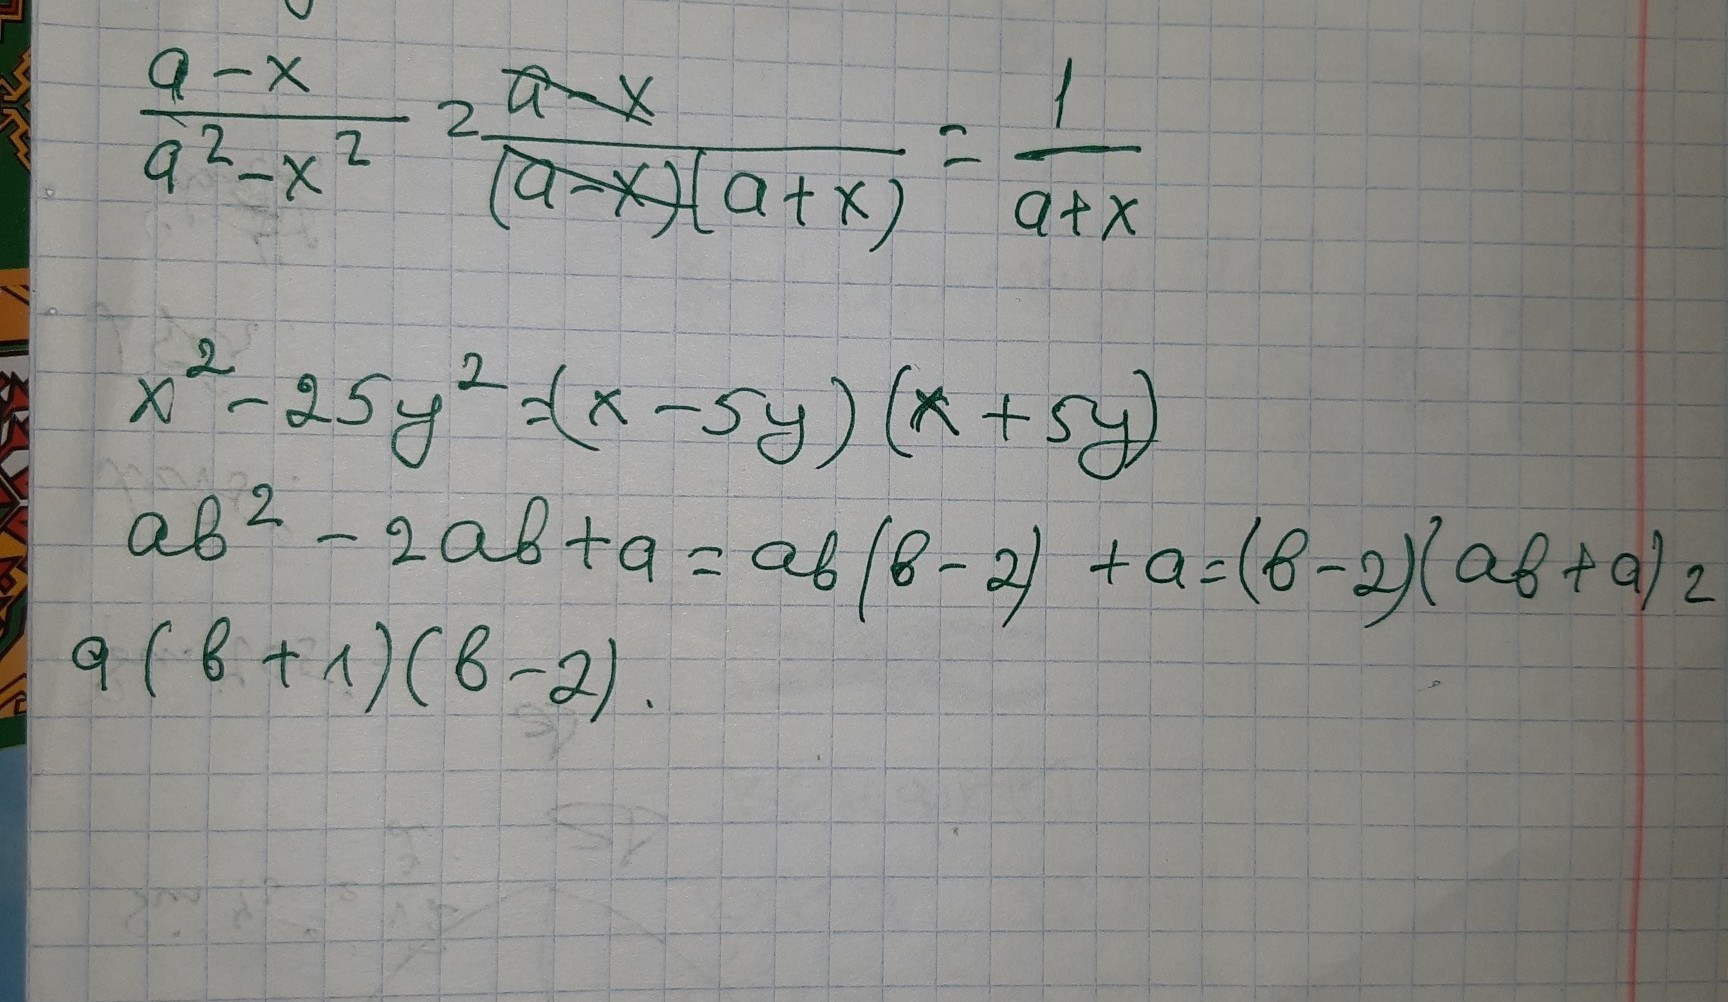 a-x/a²-x² = a-x/(a-x)(a+x) = 1/a+x
x²-25y²=(x-5y)(x+5y)
ab²-2ab+a=ab(b-2)+a=(b-2)(ab+a)=
a(b+1)(b-2).